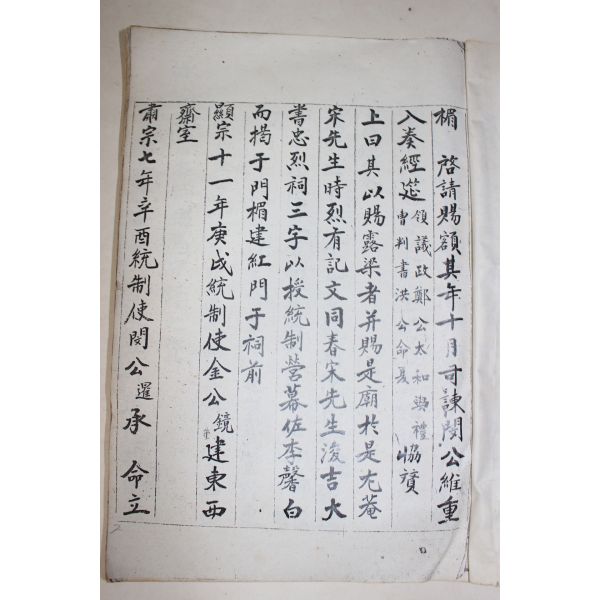 楣 啓請賜額其年十月司諫閔公維重
入奏經筵領議政鄭公太和與禮曹判書洪公命夏協贊
上曰其以賜露梁者并賜是廟於是尤菴
宋先生時烈有記文同春宋先生浚吉大
書忠烈祠三字以授統制營幕佐李馨白
而揭于門楣建紅門于祠前
顯宗十一年庚戌統制使金公鏡建東西
齋室
肅宗七年辛酉統制使閔公暹承 命立